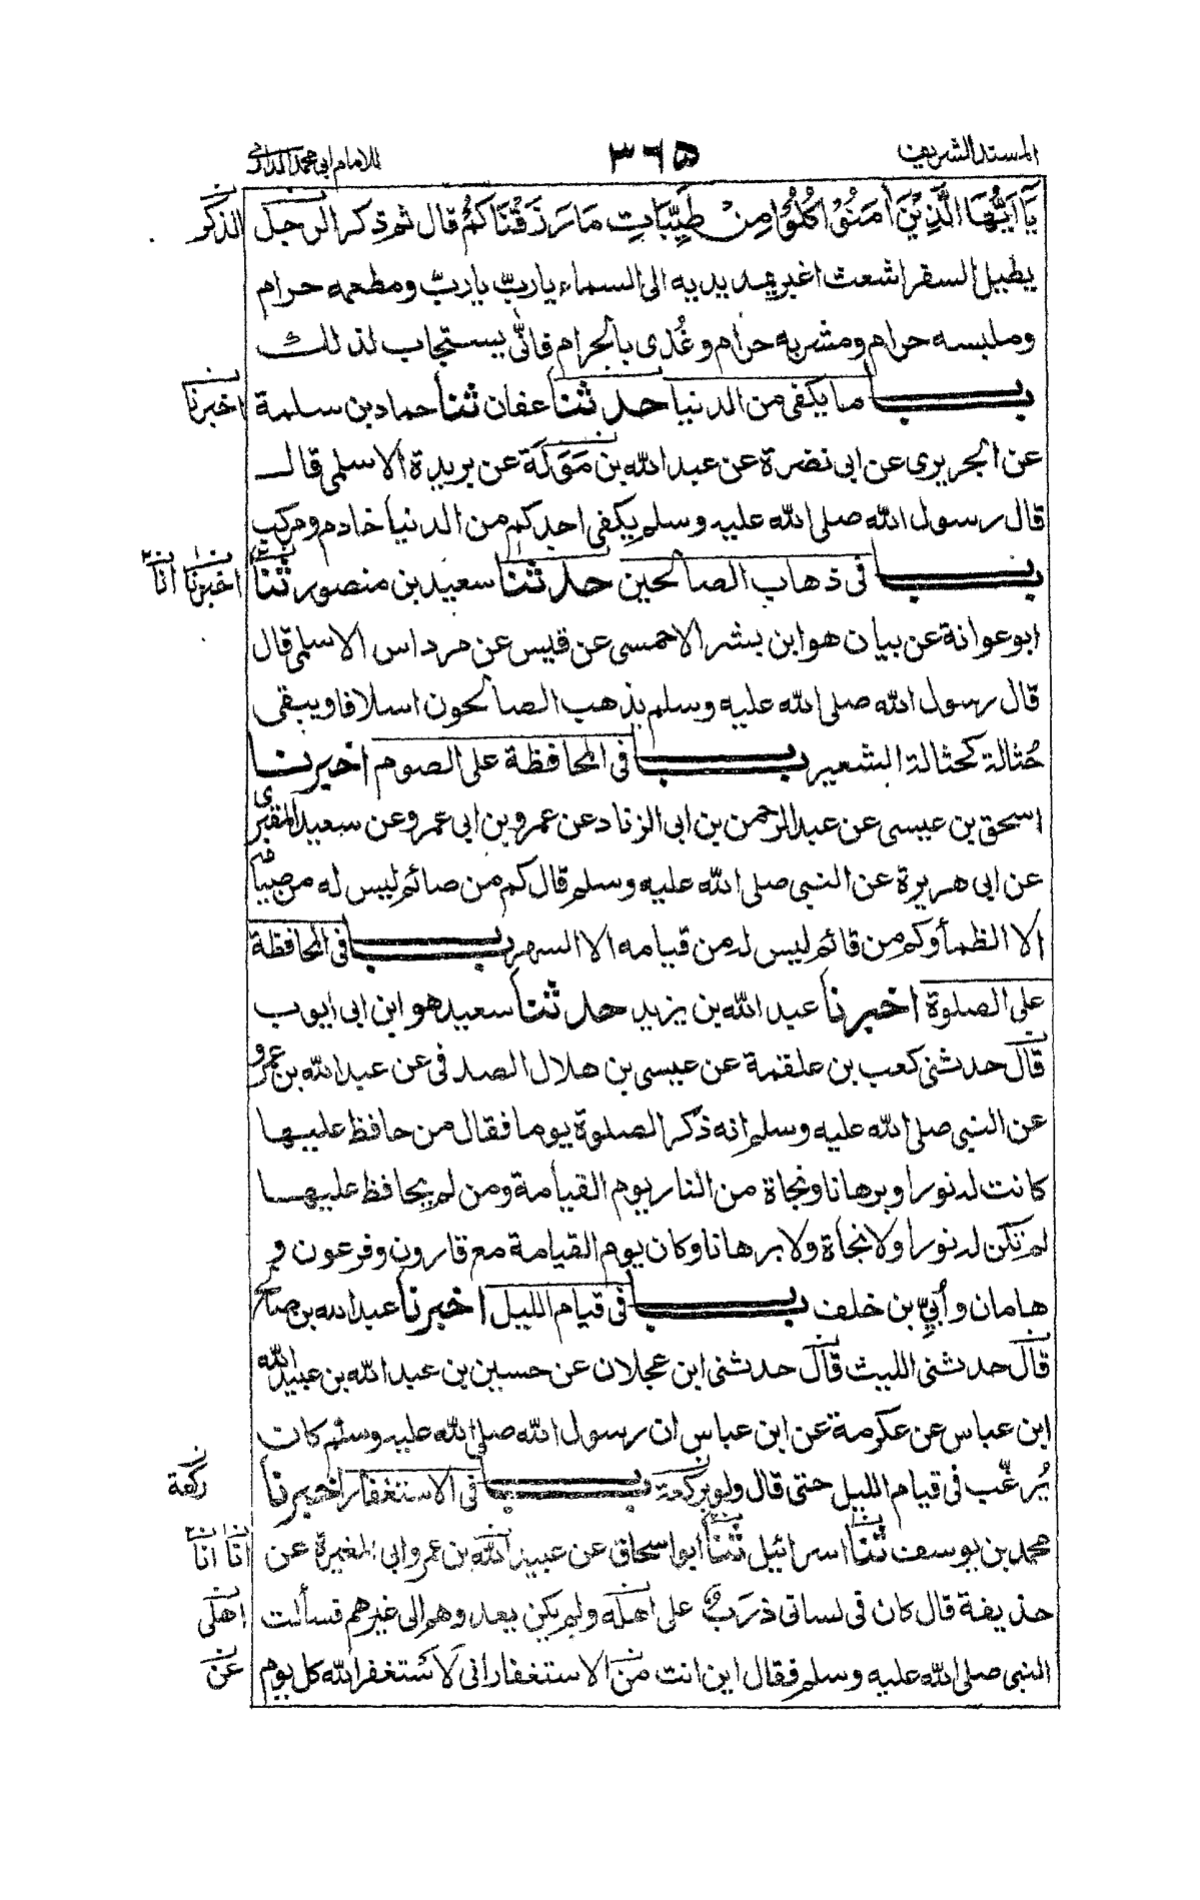 المسند الشريف ٣٦٥ للامام ابى محمد الدارمى
يَآ اَيُّهَا الَّذِيْنَ اٰمَنُوْا كُلُوْا مِنْ طَيِّبَاتِ مَا رَزَقْنَاكُمْ قال ثم ذكر الرجل الذكر
يطيل السفر اشعث اغبر يمد يديه الى السماء يارب يارب ومطعمه حرام
وملبسه حرام ومشربه حرام وغُذى بالحرام فانّى يستجاب لذلك
باب ما يكفى من الدنيا حدثنا عفان ثنا حماد بن سلمة اخبرنا
عن الجريرى عن ابى نضرة عن عبد الله بن مَوَلَة عن بريدة الاسلمى قال
قال رسول الله صلى الله عليه وسلم يكفى احدكم من الدنيا خادم ومركب
باب فى ذهاب الصالحين حدثنا سعيد بن منصور ثنا اخبرنا انا
ابو عوانة عن بيان هو ابن بشر الاحمسى عن قيس عن مرداس الاسلمى قال
قال رسول الله صلى الله عليه وسلم يذهب الصالحون اسلافا ويبقى
حُثالة كحثالة الشعير باب فى المحافظة على الصوم اخبرنا
اسحق بن عيسى عن عبد الرحمن بن ابى الزناد عن عمرو بن ابى عمرو عن سعيد المقبرى
عن ابى هريرة عن النبى صلى الله عليه وسلم قال كم من صائم ليس له من صيامه
الا الظمأ وكم من قائم ليس له من قيامه الا السهر باب فى المحافظة
على الصلوة اخبرنا عبد الله بن يزيد حدثنا سعيد هو ابن ابى ايوب
قال حدثنى كعب بن علقمة عن عيسى بن هلال الصدفى عن عبد الله بن عمرو
عن النبى صلى الله عليه وسلم انه ذكر الصلوة يوما فقال من حافظ عليها
كانت له نورا وبرهانا ونجاة من النار يوم القيامة ومن لم يحافظ عليها
لم تكن له نورا ولا نجاة ولا برهانا وكان يوم القيامة مع قارون وفرعون و
هامان وأُبَيّ بن خلف باب فى قيام الليل اخبرنا عبد الله بن صالح
قال حدثنى الليث قال حدثنى ابن عجلان عن حسين بن عبد الله بن عبيد الله
ابن عباس عن عكرمة عن ابن عباس ان رسول الله صلى الله عليه وسلم كان
يُرغّب فى قيام الليل حتى قال ولو بركعة باب فى الاستغفار اخبرنا ركعة
محمد بن يوسف ثنا اسرائيل ثنا ابو اسحاق عن عبيد الله بن عمرو ابى المغيرة عن انا انا
حذيفة قال كان فى لسانى ذرَبٌ على اهله ولم يكن يعدوهم الى غيرهم فسألت اهلى
النبى صلى الله عليه وسلم فقال اين انت من الاستغفار انى لاَستغفر الله كل يوم عن